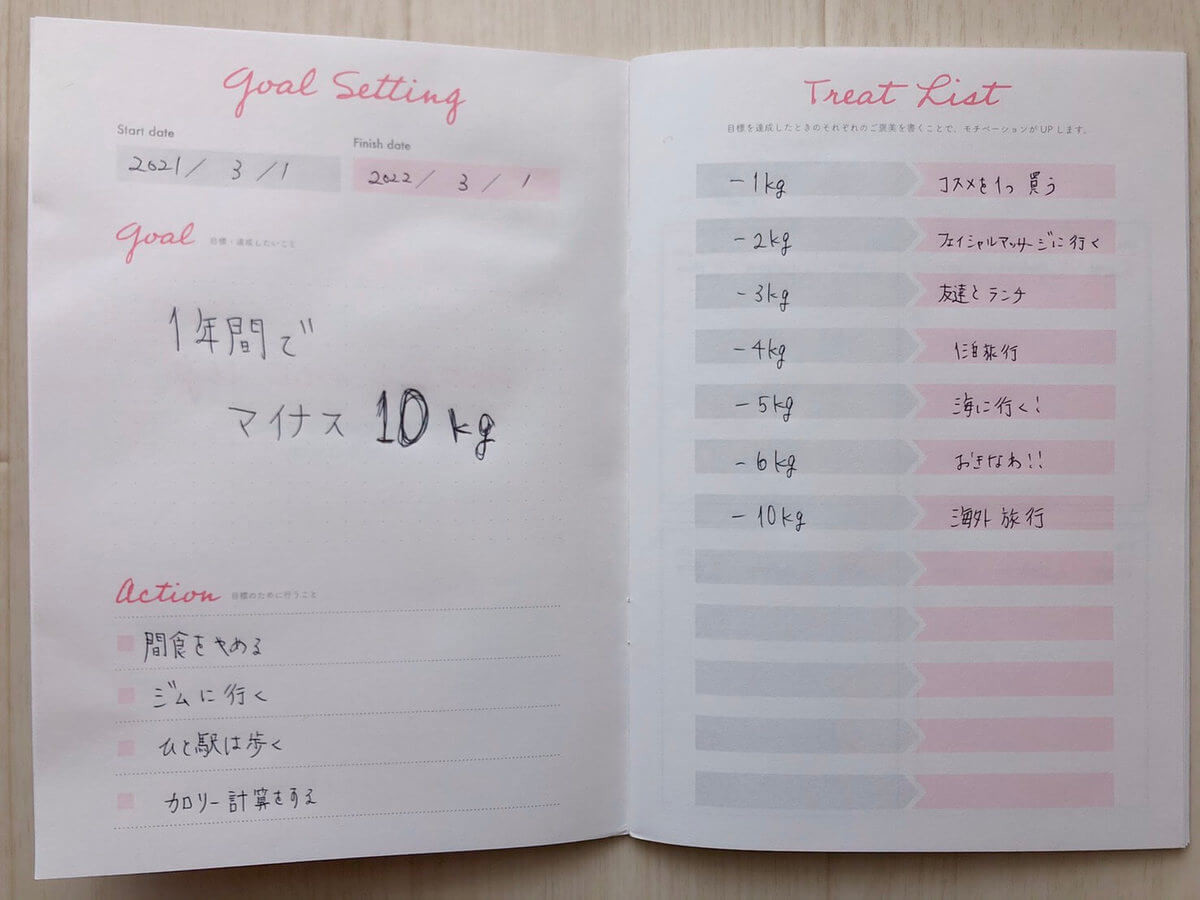 Goal Setting
Start date
2021/ 3 /1
Finish date
2022/ 3 / 1
Goal 目標・達成したいこと
1年間で
マイナス 10kg
Action 目標のために行うこと
間食をやめる
ジムに行く
ひと駅は歩く
カロリー計算をする
Treat List
目標を達成したときのそれぞれのご褒美を書くことで、モチベーションがUPします。
-1kg コスメを1つ買う
-2kg フェイシャルマッサージに行く
-3kg 友達とランチ
-4kg 1泊旅行
-5kg 海に行く!
-6kg おきなわ!!
-10kg 海外旅行